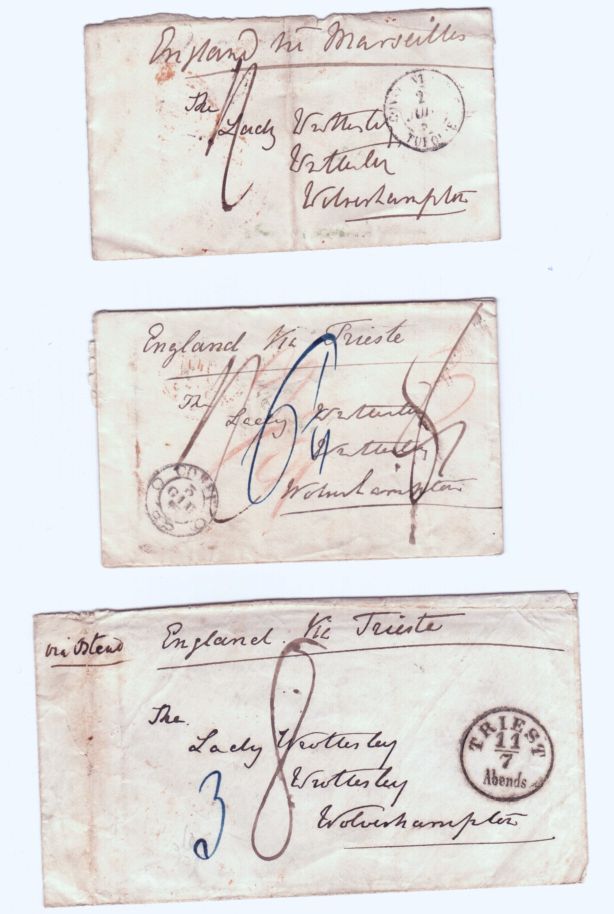 England via Marseilles
The
Lady Wrottesley
Wrottesley
Wolverhampton
2
England Via Trieste
The
Lady Wrottesley
Wrottesley
Wolverhampton
6
8
England Via Trieste
via Ostend
The
Lady Wrottesley
Wrottesley
Wolverhampton
3
8
TRIEST
11
7
Abends